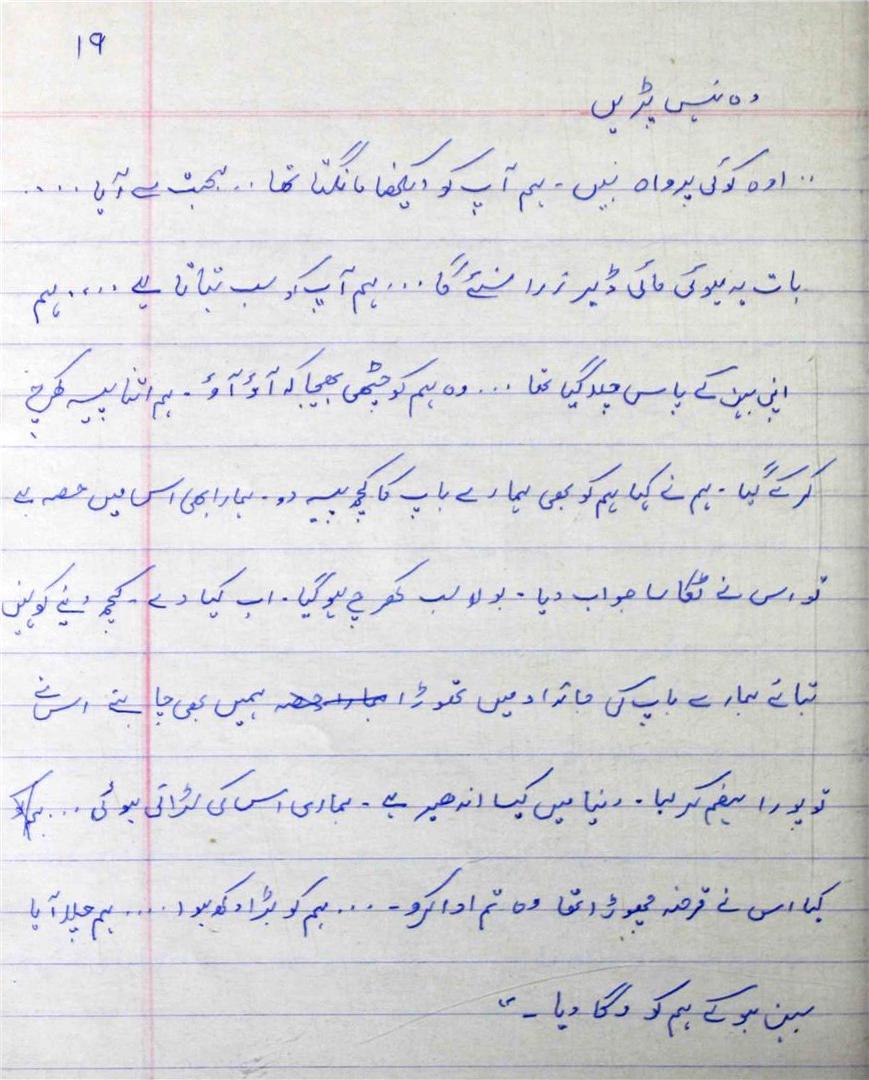 ۱۹
وہ ہنس پڑیں
"اوہ کوئی پرواہ نہیں۔ ہم آپ کو دیکھنا مانگتا تھا... محبت سے آیا ....
بات یہ ہوئی مائی ڈیر ذرا سنئے گا... ہم آپ کو سب بتاتا ہے .... ہم
اپنی بہن کے پاس چلا گیا تھا ... وہ ہم کو چٹھی بھیجا کہ آؤ آؤ۔ ہم اتنا پیسہ کھرچ
کر کے گیا۔ ہم نے کہا ہم کو بھی ہمارے باپ کا کچھ پیسہ دو۔ ہمارا بھی اس میں حصہ ہے
تو اس نے ٹکا سا جواب دیا۔ بولا سب کھرچ ہو گیا۔ اب کیا دے۔ کچھ دینے کو نہیں
بتائے ہمارے باپ کی جائداد میں تھوڑا ہمارا حصہ ہمیں بھی چاہئے اس نے
تو پورا ہضم کر لیا۔ دنیا میں کیسا اندھیر ہے۔ ہماری اس کی لڑائی ہوئی ... ہم
کہا اس نے قرضہ چھوڑا تھا وہ تم ادا کرو۔ ... ہم کو بڑا دکھ ہوا .... ہم چلا آیا
بہن ہو کے ہم کو دگا دیا۔"